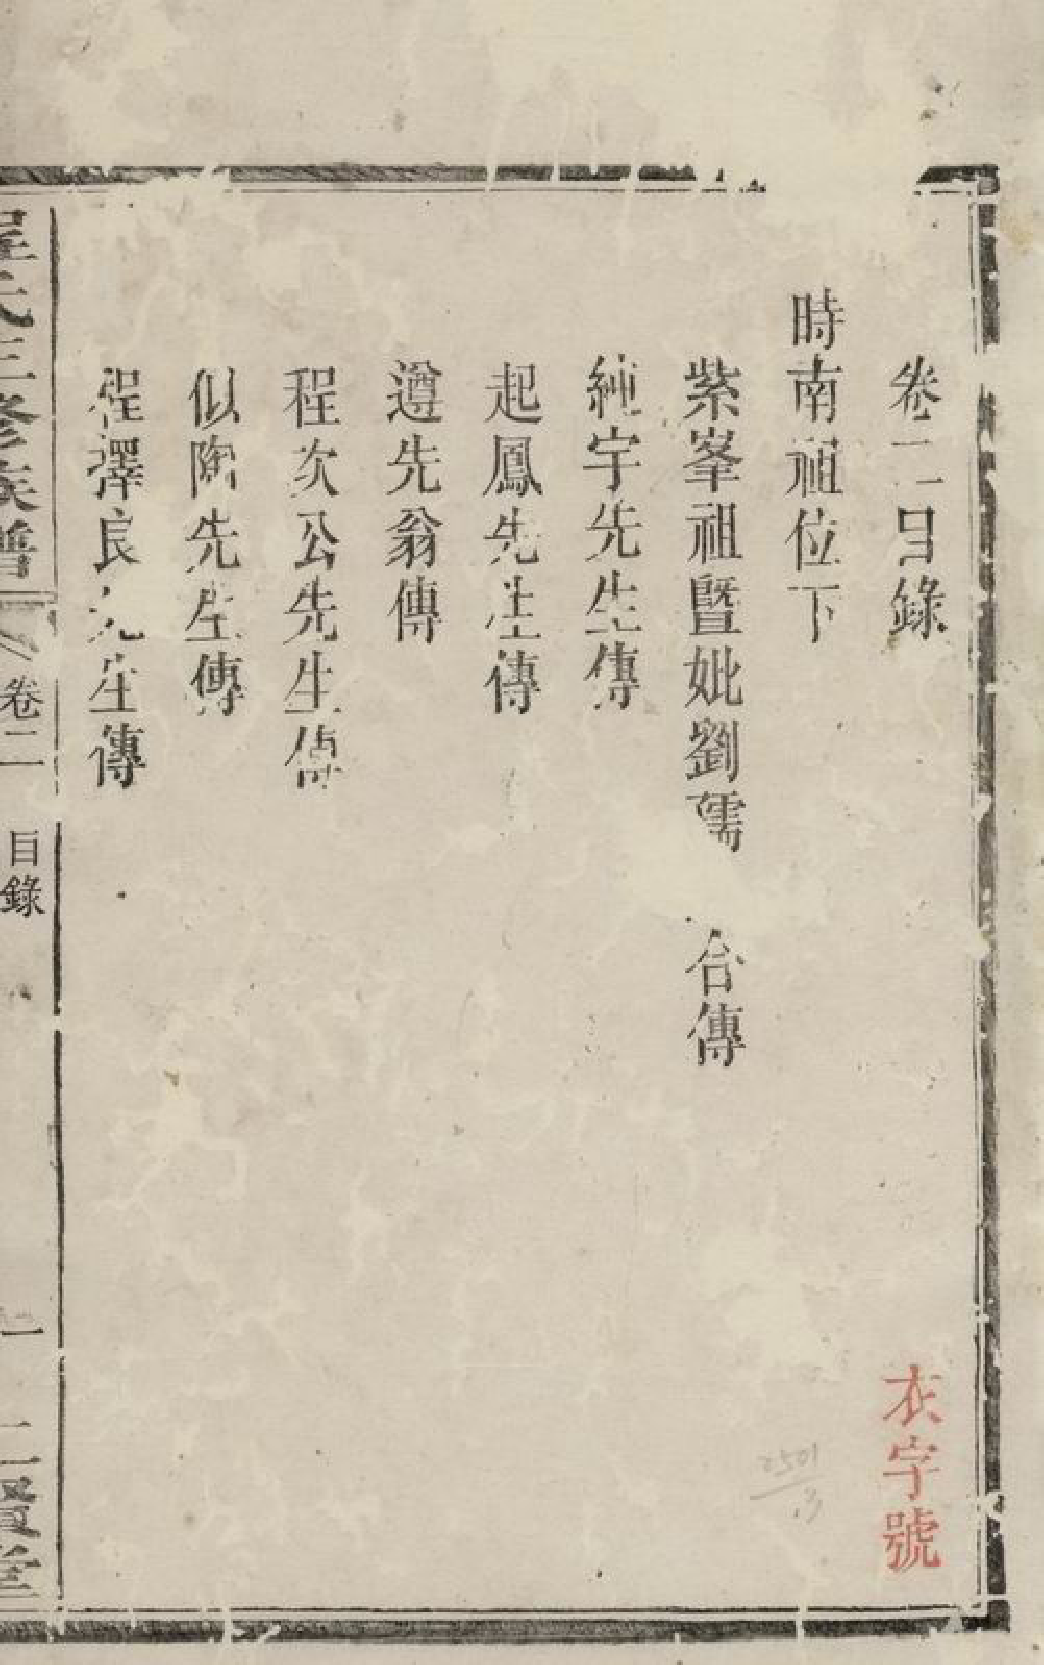 卷二目錄
衣字號
時南祖位下
紫峯祖暨妣劉孺 合傳
純宇先生傳
起鳳先生傳
遵先翁傳
程次公先生傳
似陶先生傳
程澤良先生傳
程氏三修族譜
卷二
目錄
一
二賢堂
2501
13